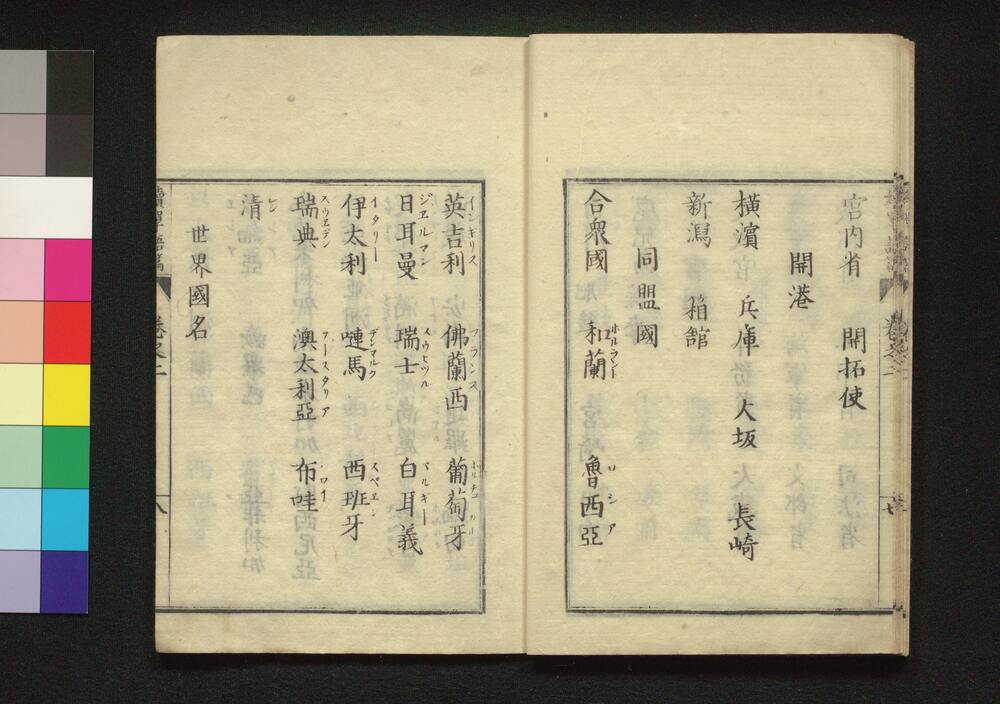 宮内省　開拓使
開港
横濵　兵庫　大坂　長崎
新潟　箱舘
同盟國
合衆國　和蘭　魯西亞
ホルランド　ロシア
英吉利　佛蘭西　葡萄牙
インギリス　フランス
日耳曼　瑞士　白耳義
ジヱルマン　スウヒツル　ベルギー
伊太利　嗹馬　西班牙
イタリー　デンマルク　スペヱン
瑞典　澳太利亞　布哇
スウヱデン　アースタリア　ハワイ
清
シン
世界國名
卷之二
八